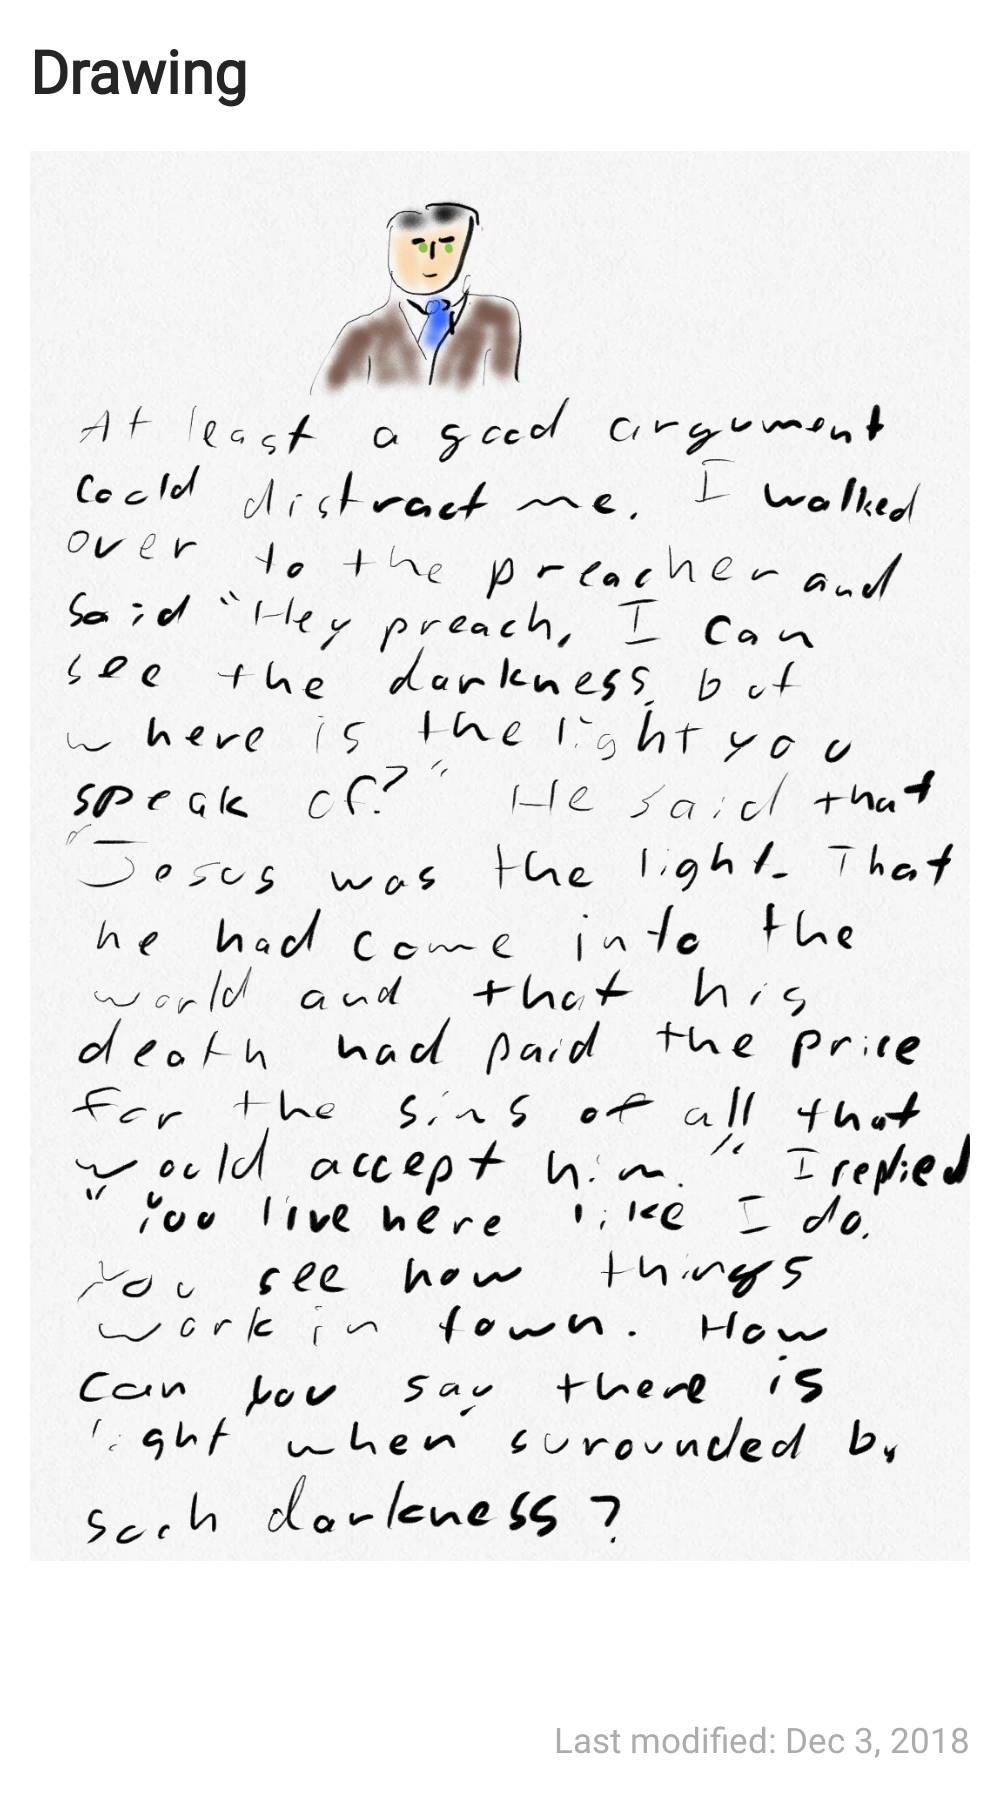 Drawing
At least a good argument
could distract me. I walked
over to the preacher and
said "Hey preach, I can
see the darkness, but
where is the light you
speak of?" He said that
"Jesus was the light. That
he had come into the
world and that his
death had paid the price
for the sins of all that
would accept him." I replied
"You live here like I do.
You see how things
work in town. How
can you say there is
light when surounded by
such darkness?
Last modified: Dec 3, 2018